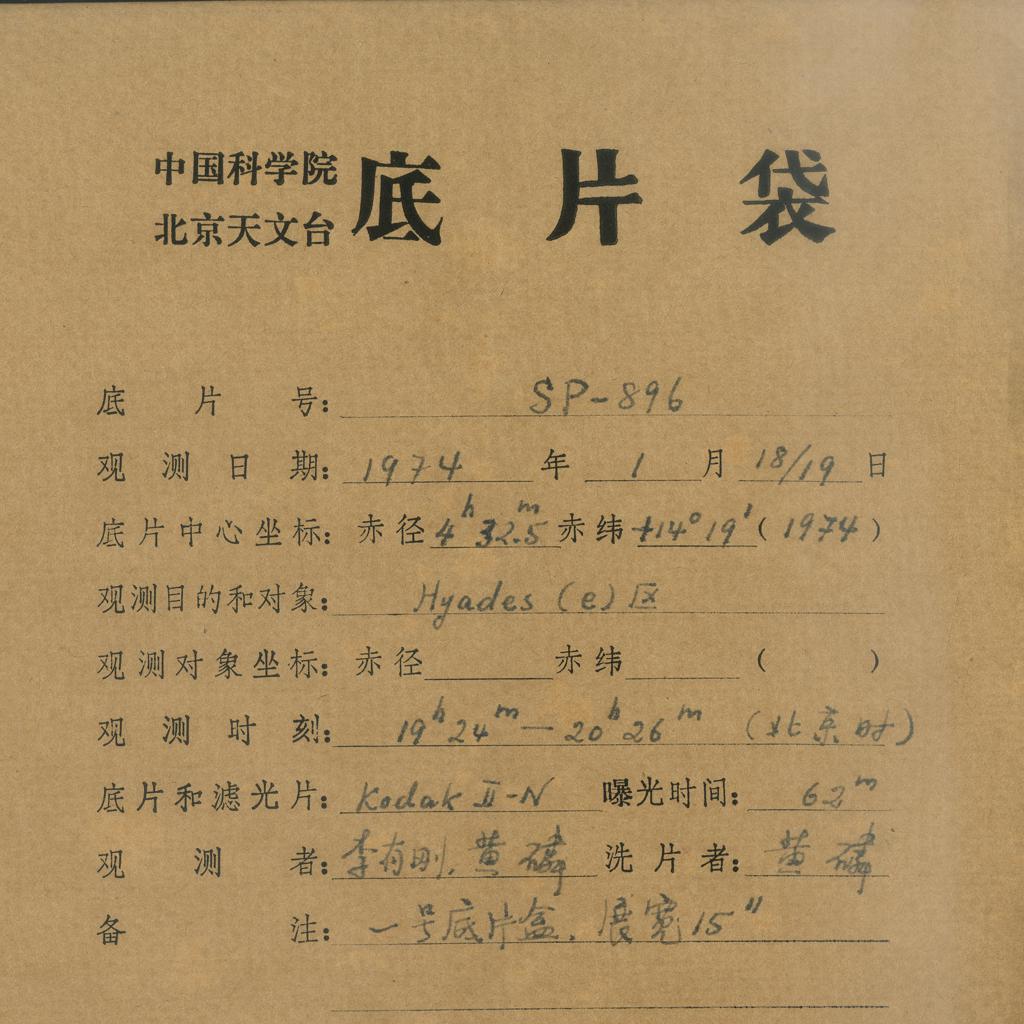 中国科学院
北京天文台
底片袋
底片号: SP-896
观测日期: 1974 年 1 月 18/19 日
底片中心坐标: 赤径 4ʰ 32ᵐ.5 赤纬 +14° 19′ ( 1974 )
观测目的和对象: Hyades (e) 区
观测对象坐标: 赤径 赤纬 ( )
观测时刻: 19ʰ 24ᵐ — 20ʰ 26ᵐ (北京时)
底片和滤光片: Kodak II-N 曝光时间: 62ᵐ
观测者: 李有刚. 黄磷 洗片者: 黄磷
备注: 一号底片盒. 展宽 15″